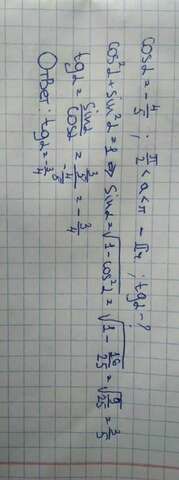 cosα = -4/5 ; π/2 < α < π - II ч ; tgα - ?
cos²α + sin²α = 1 ⇒ sinα = √(1 - cos²α) = √(1 - 16/25) = √(9/25) = 3/5
tgα = sinα/cosα = (3/5)/(-4/5) = -3/4
Ответ: tgα = -3/4